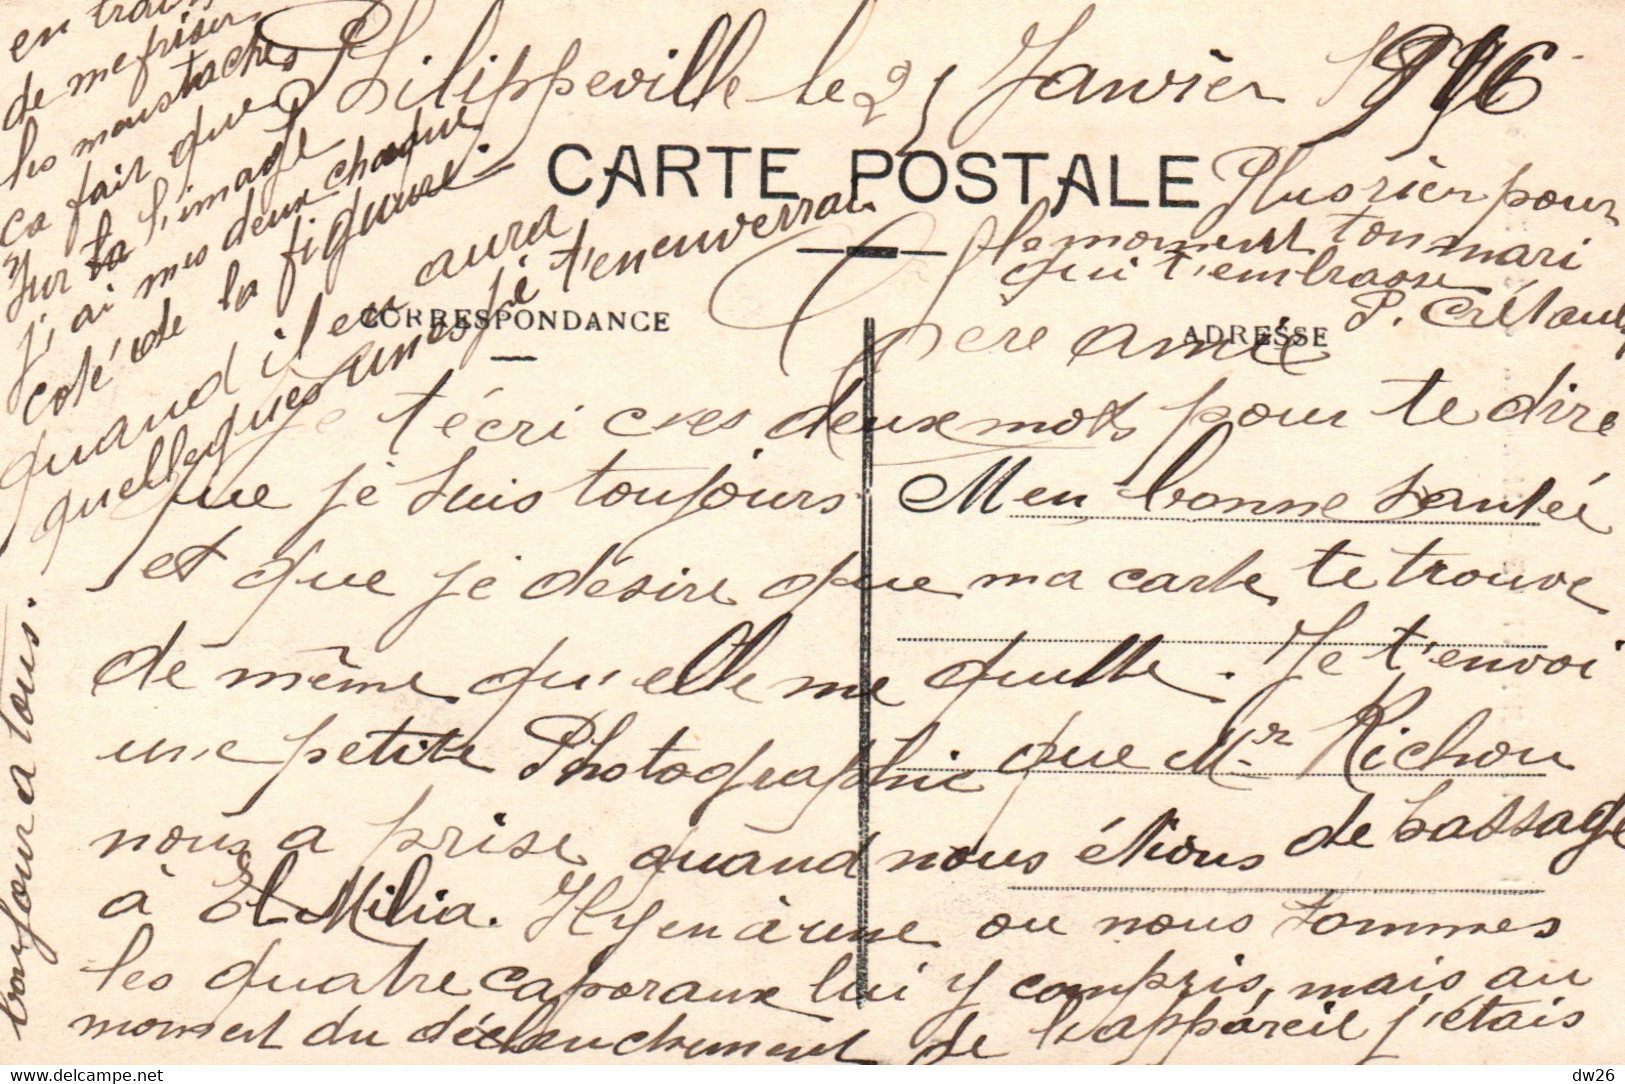 Philippeville le 25 Janvier 1916
CARTE POSTALE
CORRESPONDANCE
ADRESSE
Chère amie
Je t'écri ces deux mots pour te dire
que je suis toujours en bonne santée
et que je désire que ma carte te trouve
de même qu'elle me quitte. Je t'envoi
une petite Photographie que Mr Richou
nous a prise quand nous étions de passage
à El Milia. Il y en à une ou nous sommes
les quatre caporaux lui y compris, mais au
moment du déclanchement de l'appareil j'étais
en train
de me friser
les moustaches
ça fait que
sur la l'image
j'ai mes deux
coté de la figure
quand il en aura
quellques unes je t'en enverrai.
Plus rien pour
le moment ton mari
qui t'embrasse
P. Crétault
bonjour a tous.
dw26